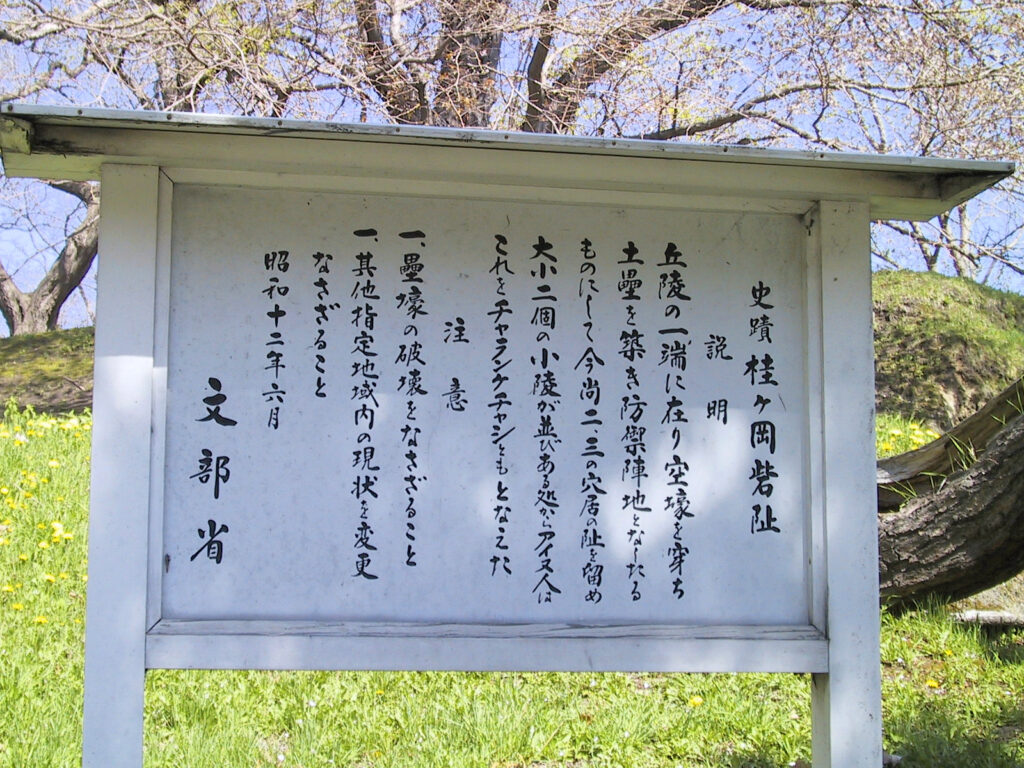 史蹟 桂ヶ岡砦趾
説明
丘陵の一端に在り空壕を穿ち
土壘を築き防禦陣地となしたる
ものにして今尚二、三の穴居の趾を留め
大小二個の小陵が並びある処からアイヌ人は
これをチャランケチャシともとなえた
注意
一、壘壕の破壊をなさざること
一、其他指定地域内の現状を変更
なさざること
昭和十二年六月
文部省